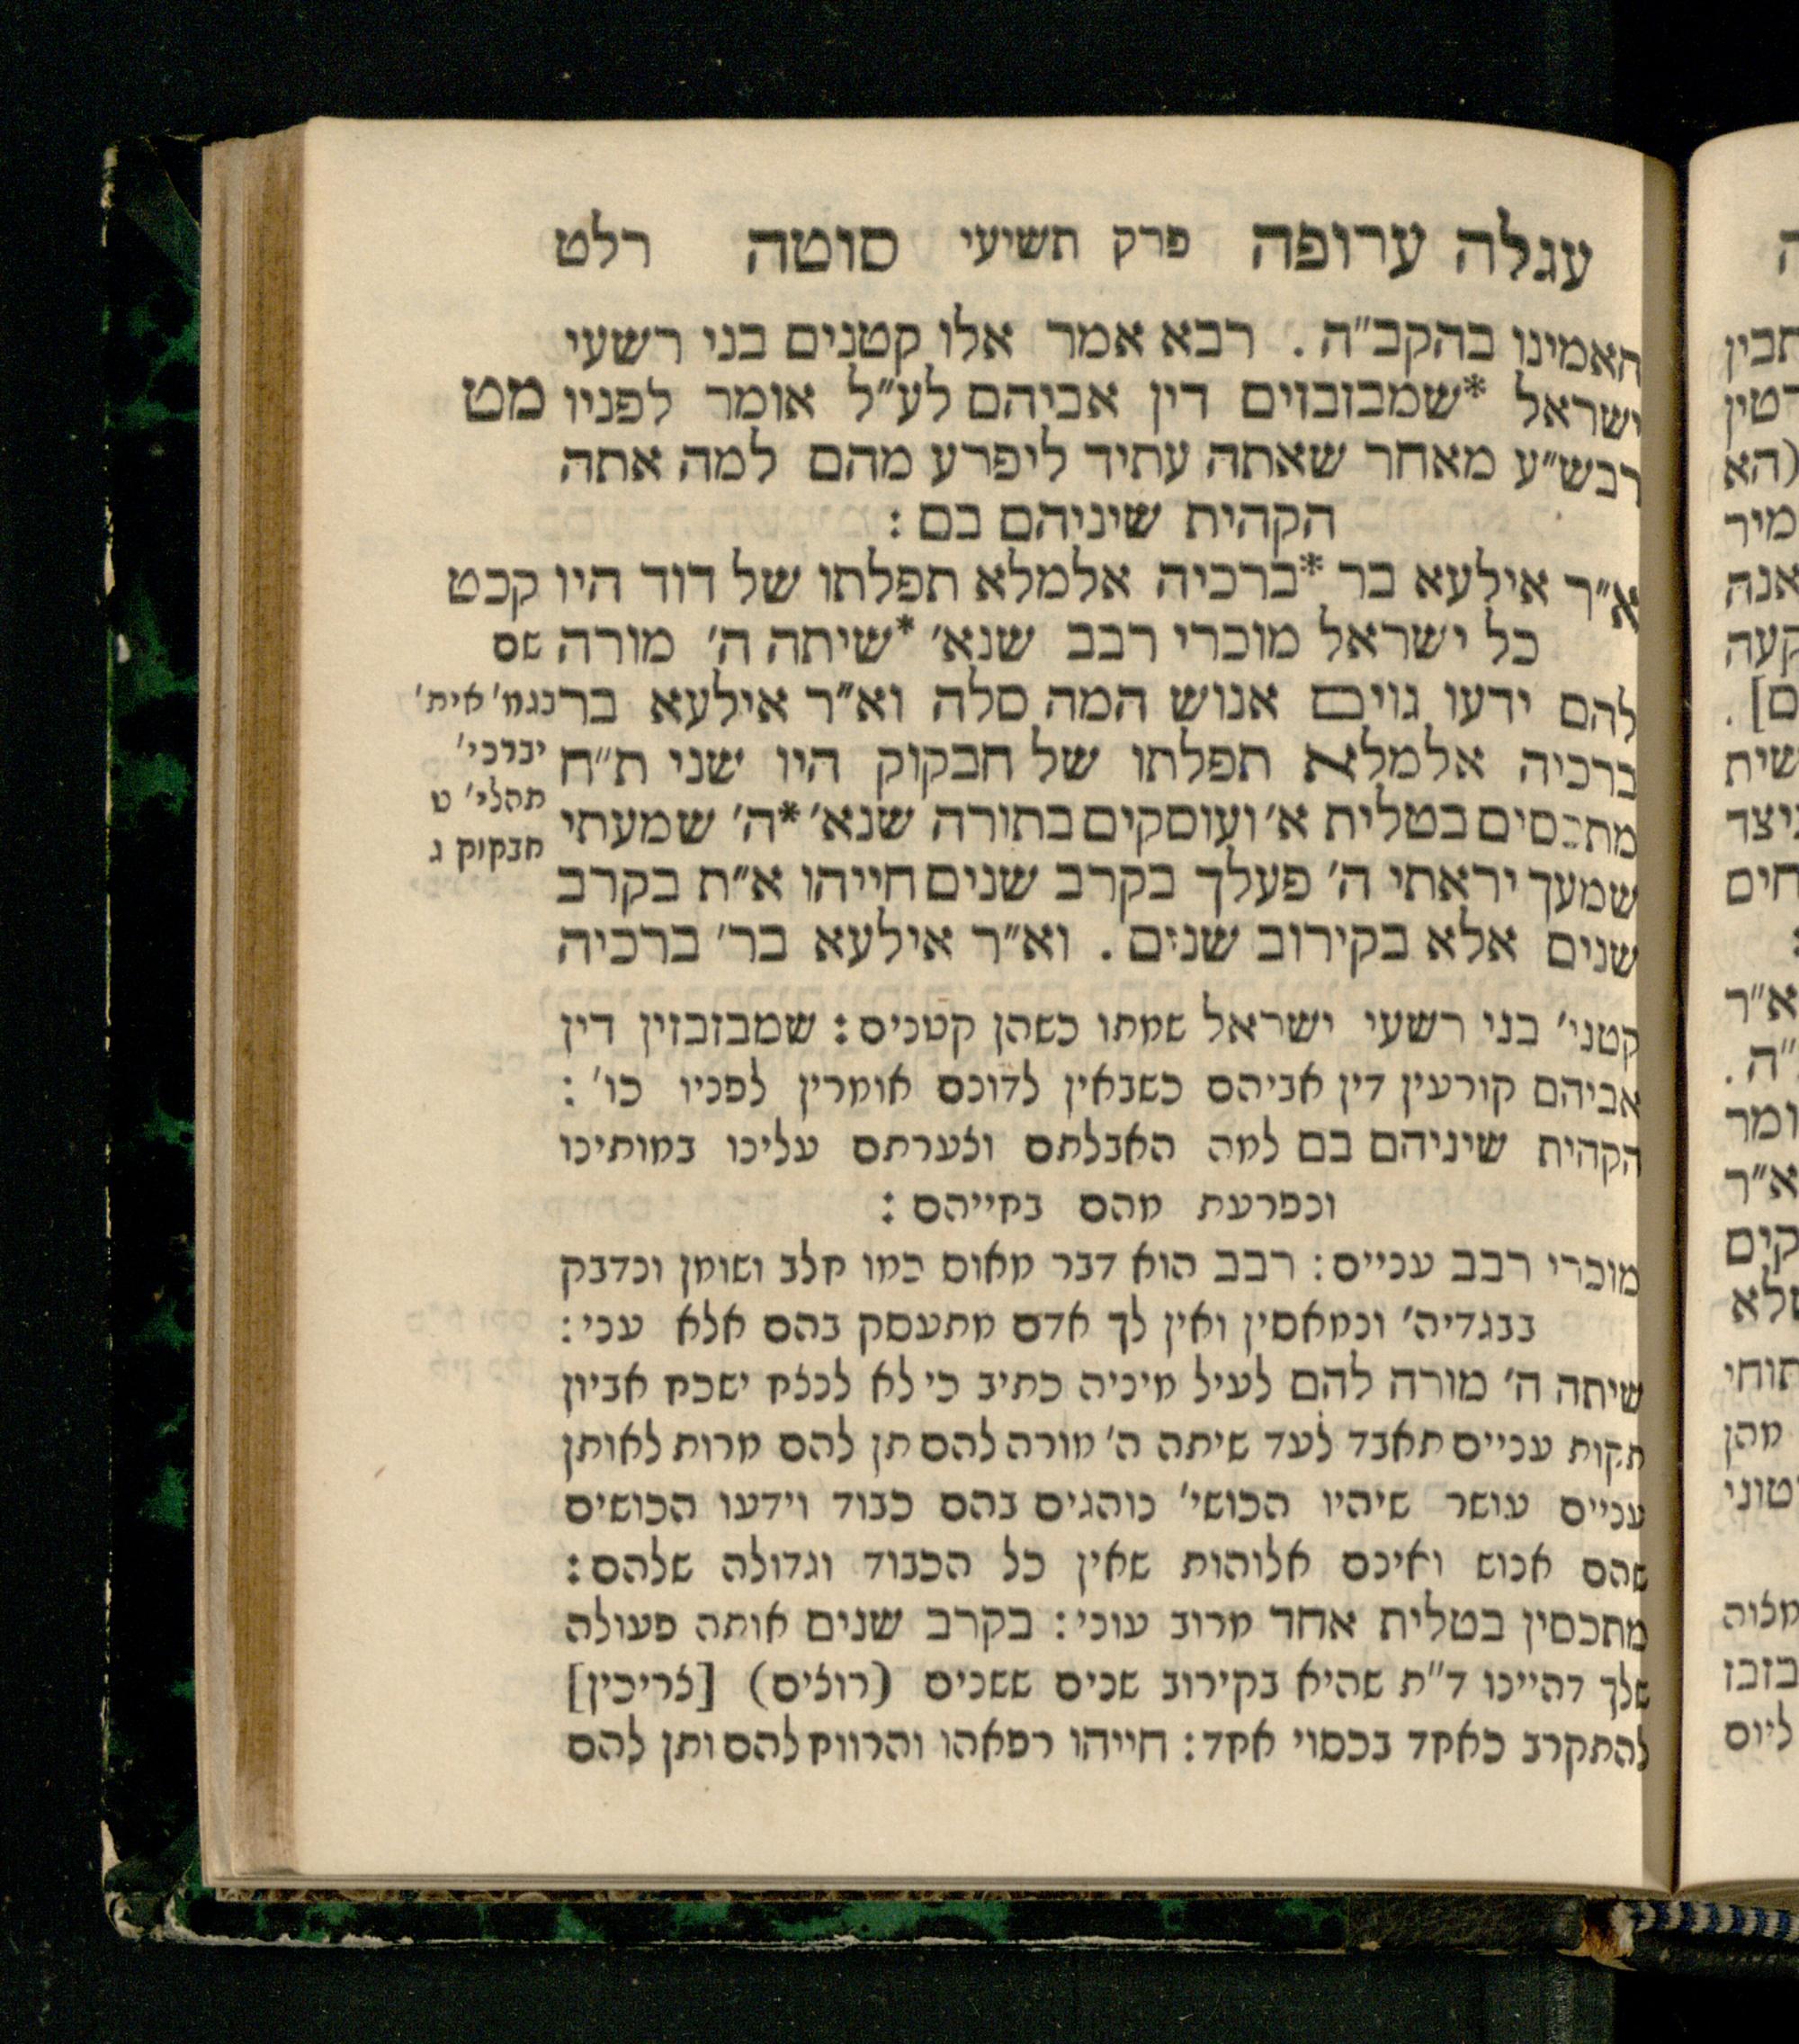 עגלה ערופה פרק תשיעי סוטה רלט
תאמינו בהקב״ה. רבא אמר אלו קטנים בני רשעי
ישראל *שמבזבזים דין אביהם לע״ל אומר לפניו מט
רבש״ע מאחר שאתה עתיד ליפרע מהם למה אתה
הקהית שיניהם בם:
א״ר אילעא בר *ברכיה אלמלא תפלתו של דוד היו קכט
כל ישראל מוכרי רבב שנא׳ *שיתה ה׳ מורה שם
להם ידעו גוים אנוש המה סלה וא״ר אילעא בר בגמ׳ אית׳
ברכיה אלמלא תפלתו של חבקוק היו שני ת״ח יברכי׳
תהלי׳ ט
מתכסים בטלית א׳ ועוסקים בתורה שנא׳ *ה׳ שמעתי
חבקוק ג
שמעך יראתי ה׳ פעלך בקרב שנים חייהו א״ת בקרב
שנים אלא בקירוב שנים. וא״ר אילעא בר׳ ברכיה
קטני׳ בני רשעי ישראל שמתו כשהן קטנים: שמבזבזין דין
אביהם קורעין דין אביהם כשבאין לדונם אומרין לפניו כו׳:
הקהית שיניהם בם למה האבלתם וצערתם עלינו במותינו
ונפרעת מהם בחייהם:
מוכרי רבב עניים: רבב הוא דבר מאוס כמו חלב ושומן ונדבק
בבגדיה׳ ונמאסין ואין לך אדם מתעסק בהם אלא עני:
שיתה ה׳ מורה להם לעיל מיניה כתיב כי לא לנצח ישכח אביון
תקות עניים תאבד לעד שיתה ה׳ מורה להם תן להם מרות לאותן
עניים עושר שיהיו הכושי׳ נוהגים בהם כבוד וידעו הכושים
שהם אנוש ואינם אלוהות שאין כל הכבוד וגדולה שלהם:
מתכסין בטלית אחד מרוב עוני: בקרב שנים אותה פעולה
שלך דהיינו ד״ת שהיא בקירוב שנים ששנים (רוצים) [צריכין]
להתקרב כאחד בכסוי אחד: חייהו רפאהו והרווח להם ותן להם